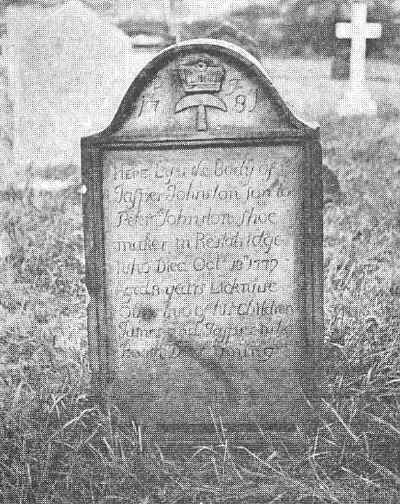 17 81
Here Lys the Body of
Jasper Johnston son to
Peter Johnston Shoe
maker in Restalridge
who Died Oct 1777
Aged 8 years Lickwise
two of his Children
James and Jasper
Died Young